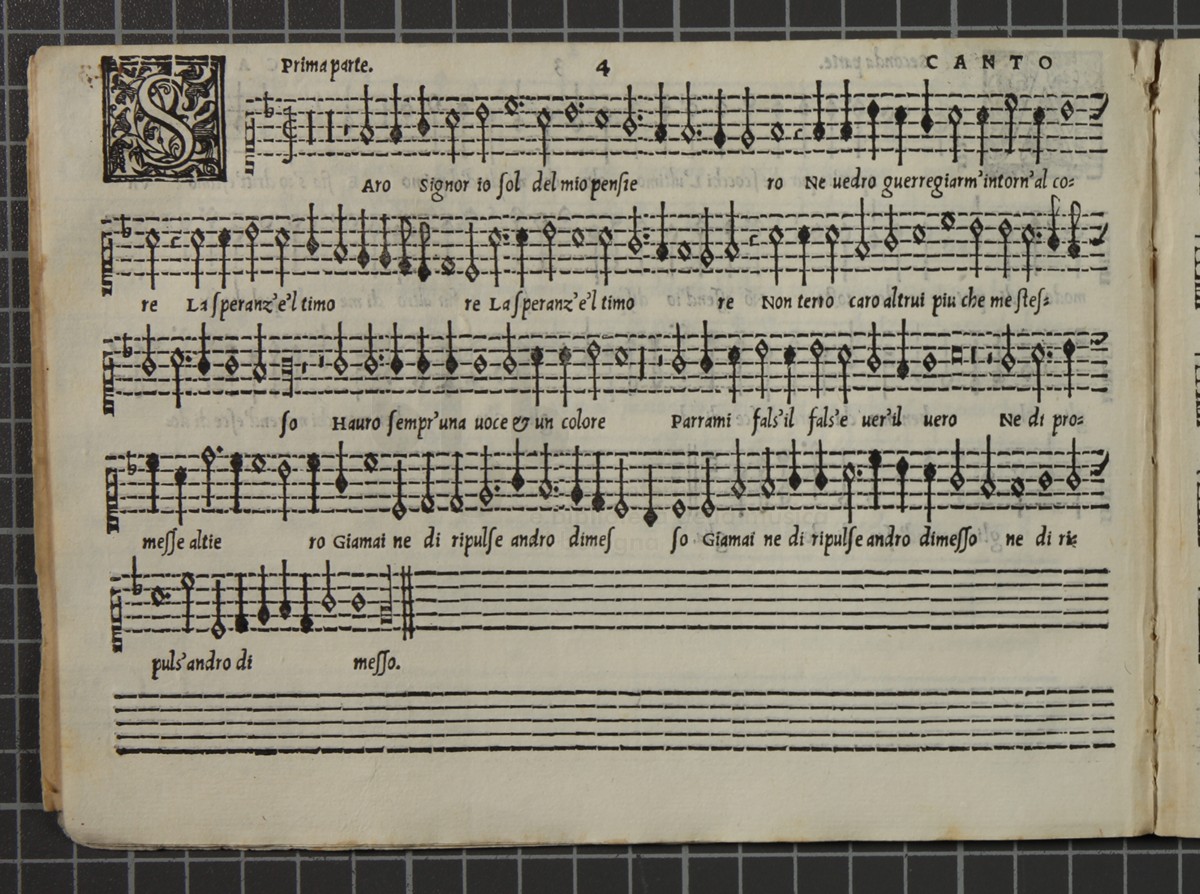 Prima parte. 4 CANTO
S Aro Signor io sol del mio pensie ro Ne uedro guerregiarm'intorn'al co=
re La speranz'e'l timo re La speranz'e'l timo re Non terro caro altrui piu che me stes=
so Hauro sempr'una uoce & un colore Parrami fals'il fals'e uer'il uero Ne di pro=
messe altie ro Giamai ne di ripulse andro dimes so Giamai ne di ripulse andro dimesso ne di ri=
puls'andro di messo.